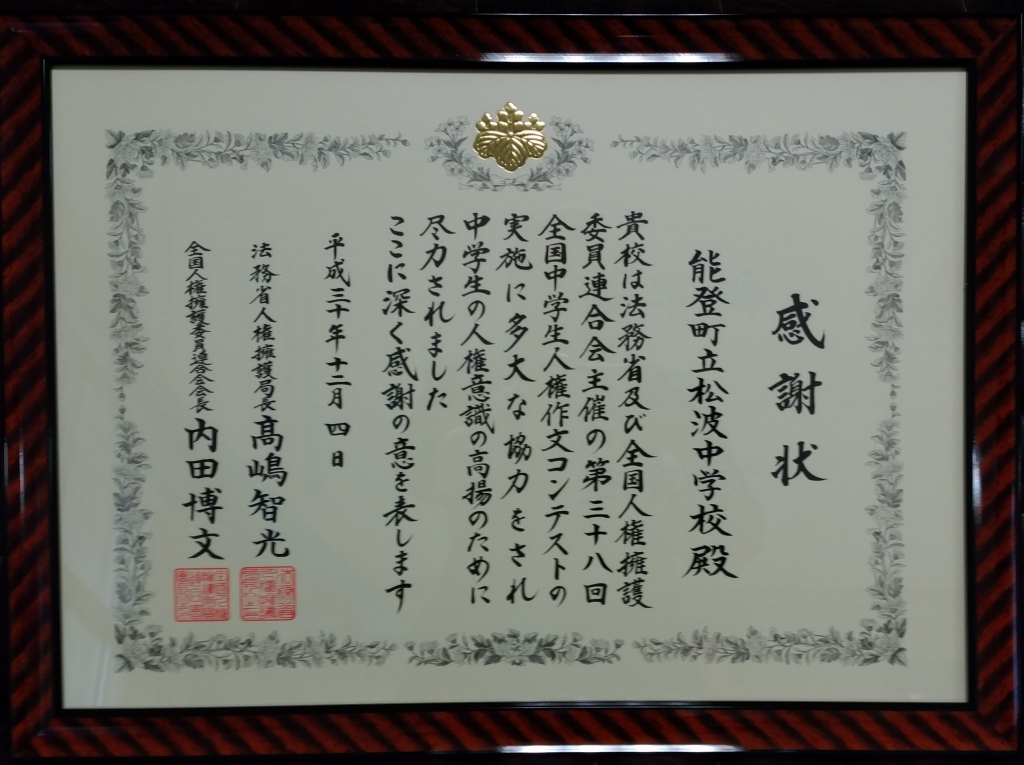 感謝状
能登町立松波中学校殿
貴校は法務省及び全国人権擁護
委員連合会主催の第三十八回
全国中学生人権作文コンテストの
実施に多大な協力をされ
中学生の人権意識の高揚のために
尽力されました
ここに深く感謝の意を表します
平成三十年十二月四日
法務省人権擁護局長 髙嶋智光
全国人権擁護委員連合会長 内田博文